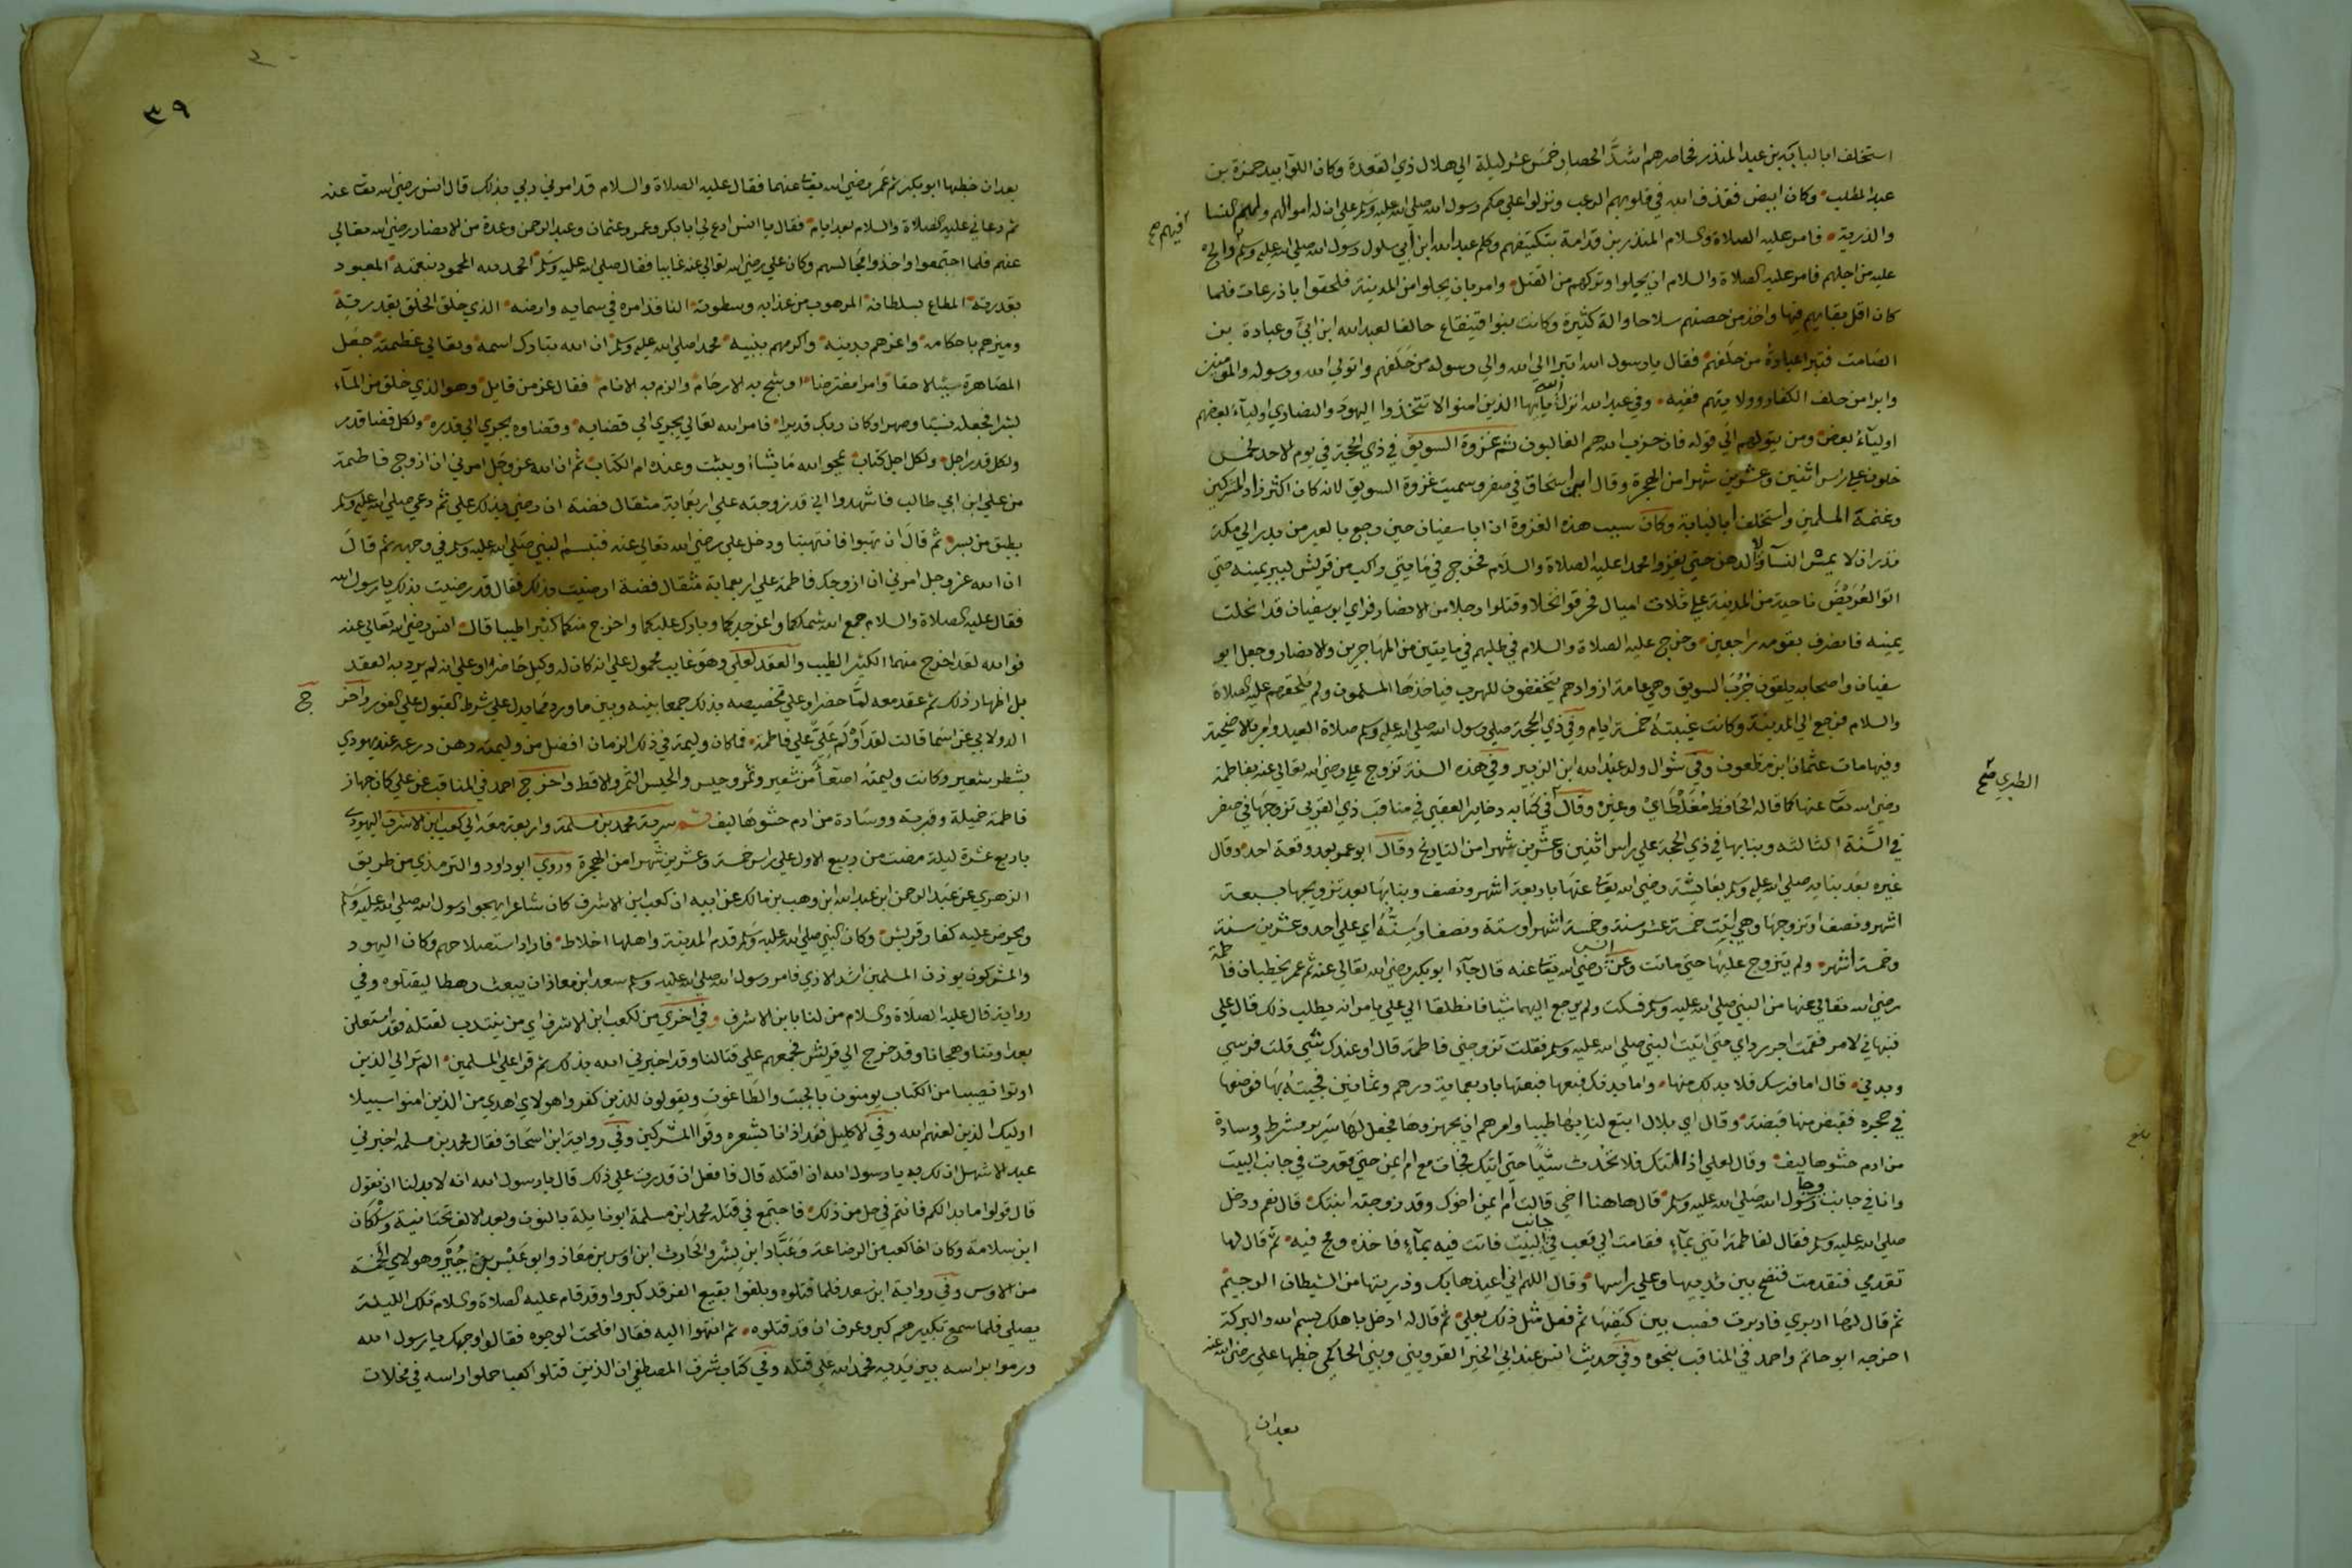 استخلف ابا لبابة بن عبد المنذر فحاصرهم اشد الحصار خمس عشر ليلة الي هلال ذي القعدة وكان اللوا بيد حمزة بن
عبد المطلب وكان ابيض فقذف الله في قلوبهم الرعب ونزلوا علي حكم رسول الله صلي الله عليه وسلم علي ان له اموالهم ولهم النسا
والذرية فامر عليه الصلاة والسلام المنذر بن قدامة بتكتيفهم وكلم عبد الله ابن أبي سلول رسول الله صلي الله عليه وسلم فيهم والح
فيهم صح
عليه من اجلهم فامر عليه الصلاة والسلام ان يجلوا وتركهم من القتل وامر بان يجلوا من المدينة فلحقوا باذرعات فلما
كان اقل بقايهم فيها واخذ من حصنهم سلاحا والة كثيرة وكانت بنوا قينقاع حالفا لعبد الله ابن ابي وعبادة بن
الصامت فتبرا عبادة من حلفهم فقال يا رسول الله اتبرا الي الله والي رسوله من حلفهم واتولي الله ورسوله والمومنين
وابرا من حلف الكفار وولايتهم ففيه وفي عبد الله انزل الله يا ايها الذين امنوا لا تتخذوا اليهود والنصاري اوليآء بعضهم
اوليآء بعض ومن يتولهم الي قوله فان حزب الله هم الغالبون ثم غزوة السويق في ذي الحجة في يوم الاحد لخمس
خلون علي راس اثنين وعشرين شهرا من الهجرة وقال ابن اسحاق في صفر وسميت غزوة السويق لانه كان اكثر زاد المشركين
وغنمه المسلمين واستخلف ابا لبابة وكان سبب هذه الغزوة ان ابا سفيان حين رجع بالعير من بدر الي مكة
نذر ان لا يمس النسآء ولا الدهن حتي يغزوا محمدا عليه الصلاة والسلام فخرج في مايتي راكب من قريش ليبر يمينه حتي
اتوا العريض ناحية من المدينة علي ثلاث اميال فحرقوا نخلا وقتلوا رجلا من الانصار فراي ابو سفيان قد انحلت
يمينه فانصرف بقومه راجعين وخرج عليه الصلاة والسلام في طلبهم في مايتين من المهاجرين والانصار وجعل ابو
سفيان واصحابه يلقون جرب السويق وهي عامة ازوادهم يتخففون للهرب فياخذها المسلمون ولم يلحقهم عليه الصلاة
والسلام فرجع الي المدينة وكانت غيبته خمسة ايام وفي ذي الحجة صلي رسول الله صلي الله عليه وسلم صلاة العيد وامر بالاضحية
وفيها مات عثمان ابن مظعون وفي شوال ولد عبد الله ابن الزبير وفي هذه السنة تزوج علي رضي الله تعالي عنه بفاطمة
رضي الله تعا عنها كما قاله الحافظ مغلطاي وغيره وقال في كتابه دخاير العقبي في مناقب ذي القربي تزوجها في صفر
الطبري صح
في السنة الثالثة وبنا بها في ذي الحجة علي راس اثنين وعشرين شهرا من التاريخ وقال ابو عمر بعد وقعة احد وقال
غيره بعد بنايه صلي الله عليه وسلم بعايشة رضي الله تعا عنها باربعة اشهر ونصف وبنا بها بعد تزويجها بسبعة
اشهر ونصف وتزوجها وهي ابنت خمسة عشر سنة وخمسة اشهر او ستة ونصف وسنه اي علي احد وعشرين سنة
وخمسة اشهر ولم يتزوج عليها حتي ماتت وعن انس رضي الله تعا عنه قال جآء ابو بكر رضي الله تعالي عنه ثم عمر يخطبان فاطمة
رضي الله تعالي عنها من النبي صلي الله عليه وسلم فسكت ولم يرجع اليهما شيا فانطلقا الي علي يامرانه يطلب ذلك قال علي
فنبهاني لامر فقمت اجر رداي حتي اتيت النبي صلي الله عليه وسلم فقلت تزوجني فاطمة قال او عندك شيي قلت فرسي
وبدني قال اما فرسك فلا بد لك منها واما بدنك فبعها فبعتها باربعماية درهم وثمانين فجيته بها فوضعها
في حجره فقبض منها قبضة وقال اي بلال ابتع لنا بها طيبا وامرهم ان يجهزوها فجعل لها سرير مشرط ووسادة
بلغ
من ادم حشوها ليف وقال لعلي اذا اتتك فلا تحدث شيا حتي اتيك فجات مع ام ايمن حتي قعدت في جانب البيت
وانا في جانب وجآ رسول الله صلي الله عليه وسلم قال هاهنا اخي قالت ام ايمن اخوك وقد زوجته ابنتك قال نعم ودخل
صلي الله عليه وسلم فقال لفاطمة اتني بمآء فقامت الي قعب في جانب البيت فاتت فيه بمآء فاخذه ومج فيه ثم قال لها
تقدمي فتقدمت فنضح بين ثدييها وعلي راسها وقال اللهم اني اعيذها بك وذريتها من الشيطان الرجيم
ثم قال لها ادبري فادبرت فصب بين كتفيها ثم فعل مثل ذلك بعلي ثم قال له ادخل باهلك بسم الله والبركة
اخرجه ابو حاتم واحمد في المناقب بنحوه وفي حديث انس عند ابي الخير القزويني وبني الحاكمي خطبها علي رضي الله عنه
بعد ان
٣٩
بعد ان خطبها ابو بكر ثم عمر رضي الله تعا عنهما فقال عليه الصلاة والسلام قد امرني ربي بذلك قال انس رضي الله تعا عنه
ثم دعاني عليه الصلاة والسلام بعد ايام فقال يا انس ادع لي ابا بكر وعمر وعثمان وعبد الرحمن وعدة من الانصار رضي الله تعالي
عنهم فلما اجتمعوا واخذوا مجالسهم وكان علي رضي الله تعالي عنه غايبا فقال صلي الله عليه وسلم الحمد لله المحمود بنعمته المعبود
بقدرته المطاع بسلطانه المرهوب من عذابه وسطوته النافذ امره في سمايه وارضه الذي خلق الخلق بقدرته
وميزهم باحكامه واعزهم بدينه واكرمهم بنبيه محمد صلي الله عليه وسلم ان الله تبارك اسمه وتعالي عظمته جعل
المصاهرة سببا لاحقا وامرا مفترضا اوشج به الارحام والزم به الانام فقال عز من قايل وهو الذي خلق من المآء
بشرا فجعله نسبا وصهرا وكان ربك قديرا فامر الله تعالي يجري الي قضايه وقضاوه يجري الي قدره ولكل قضا قدر
ولكل قدر اجل ولكل اجل كتاب يمحو الله ما يشاء ويثبت وعنده ام الكتاب ثم ان الله عز وجل امرني ان ازوج فاطمة
من علي ابن ابي طالب فاشهدوا اني قد زوجته علي اربعماية مثقال فضة ان رضي بذلك علي ثم دعي صلي الله عليه وسلم
بطبق من بسر ثم قال انتهبوا فانتهبنا ودخل علي رضي الله تعالي عنه فتبسم النبي صلي الله عليه وسلم في وجهه ثم قال
ان الله عز وجل امرني ان ازوجك فاطمة علي اربعماية مثقال فضة ارضيت بذلك فقال قد رضيت بذلك يا رسول الله
فقال عليه الصلاة والسلام جمع الله شملكما واعز جدكما وبارك عليكما واخرج منكما كثيرا طيبا قال انس رضي الله تعالي عنه
فوالله لقد اخرج منهما الكثير الطيب والعقد لعلي وهو غايب محمول علي انه كان له وكيل حاضر او علي انه لم يرد به العقد
بل اظهار ذلك ثم عقد معه لما حضر او علي تخصيصه بذلك جمعا بينه وبين ما ورد مما يدل علي شرط القبول علي الفور واخرج
ج
الدولابي عن اسما قالت لقد اولم علي علي فاطمة فما كان وليمة في ذلك الزمان افضل من وليمته رهن درعه عند يهودي
بشطر شعير وكانت وليمته اصعا من شعير وتمر وحيس والحيس التمر والاقط واخرج احمد في المناقب عن علي كان جهاز
فاطمة خميلة وقربة ووسادة من ادم حشوها ليف ثم سرية محمد بن مسلمة واربعة معه الي كعب ابن الاشرف اليهودي
باربع عشرة ليلة مضت من ربيع الاول علي راس خمسة وعشرين شهرا من الهجرة وروي ابو داود والترمذي من طريق
الزهري عن عبد الرحمن ابن عبد الله ابن وهب بن مالك عن ابيه ان كعب ابن الاشرف كان شاعرا يهجوا رسول الله صلي الله عليه وسلم
ويحرض عليه كفار قريش وكان النبي صلي الله عليه وسلم قدم المدينة واهلها اخلاط فاراد استصلاحهم وكان اليهود
والمشركون يوذن المسلمين اشد الاذي فامر رسول الله صلي الله عليه وسلم سعد ابن معاذ ان يبعث رهطا ليقتلوه وفي
رواية قال عليه الصلاة والسلام من لنا بابن الاشرف وفي اخري من لكعب ابن الاشرف اي من ينتدب لقتله فقد استعلن
بعداوتنا وهجانا وقد خرج الي قريش فجمعهم علي قتالنا وقد اخبرني الله بذلك ثم قرا علي المسلمين الم تر الي الذين
اوتوا نصيبا من الكتاب يومنون بالجبت والطاغوت ويقولون للذين كفروا هولاي اهدي من الذين امنوا سبيلا
اوليك الذين لعنهم الله وفي الاكليل فقد اذانا بشعره وقوا المشركين وفي رواية ابن اسحاق فقال محمد بن مسلمه اخو بني
عبد الاشهل انا لك به يا رسول الله ان اقتله قال فافعل ان قدرت علي ذلك قال يا رسول الله انه لا بد لنا ان نقول
قال قولوا ما بدا لكم فانتم في حل من ذلك فاجتمع في قتله محمد ابن مسلمة ابو نايلة بالنون وبعد الالف تحتانية وسلكان
ابن سلامة وكان اخا كعب من الرضاعة وعباد ابن بشر والحارث ابن اوس بن معاذ وابو عبس بن جبر وهولاي الخمسة
من الاوس وفي رواية ابن سعد فلما قتلوه وبلغوا بقيع الغرقد كبروا وقد قام عليه الصلاة والسلام تلك الليلة
يصلي فلما سمع تكبيرهم كبر وعرف ان قد قتلوه ثم انتهوا اليه فقال افلحت الوجوه فقالوا وجهك يا رسول الله
ورموا براسه بين يديه فحمد الله علي قتله وفي كتاب شرف المصطفي ان الذين قتلوا كعبا حملوا راسه في مخلات